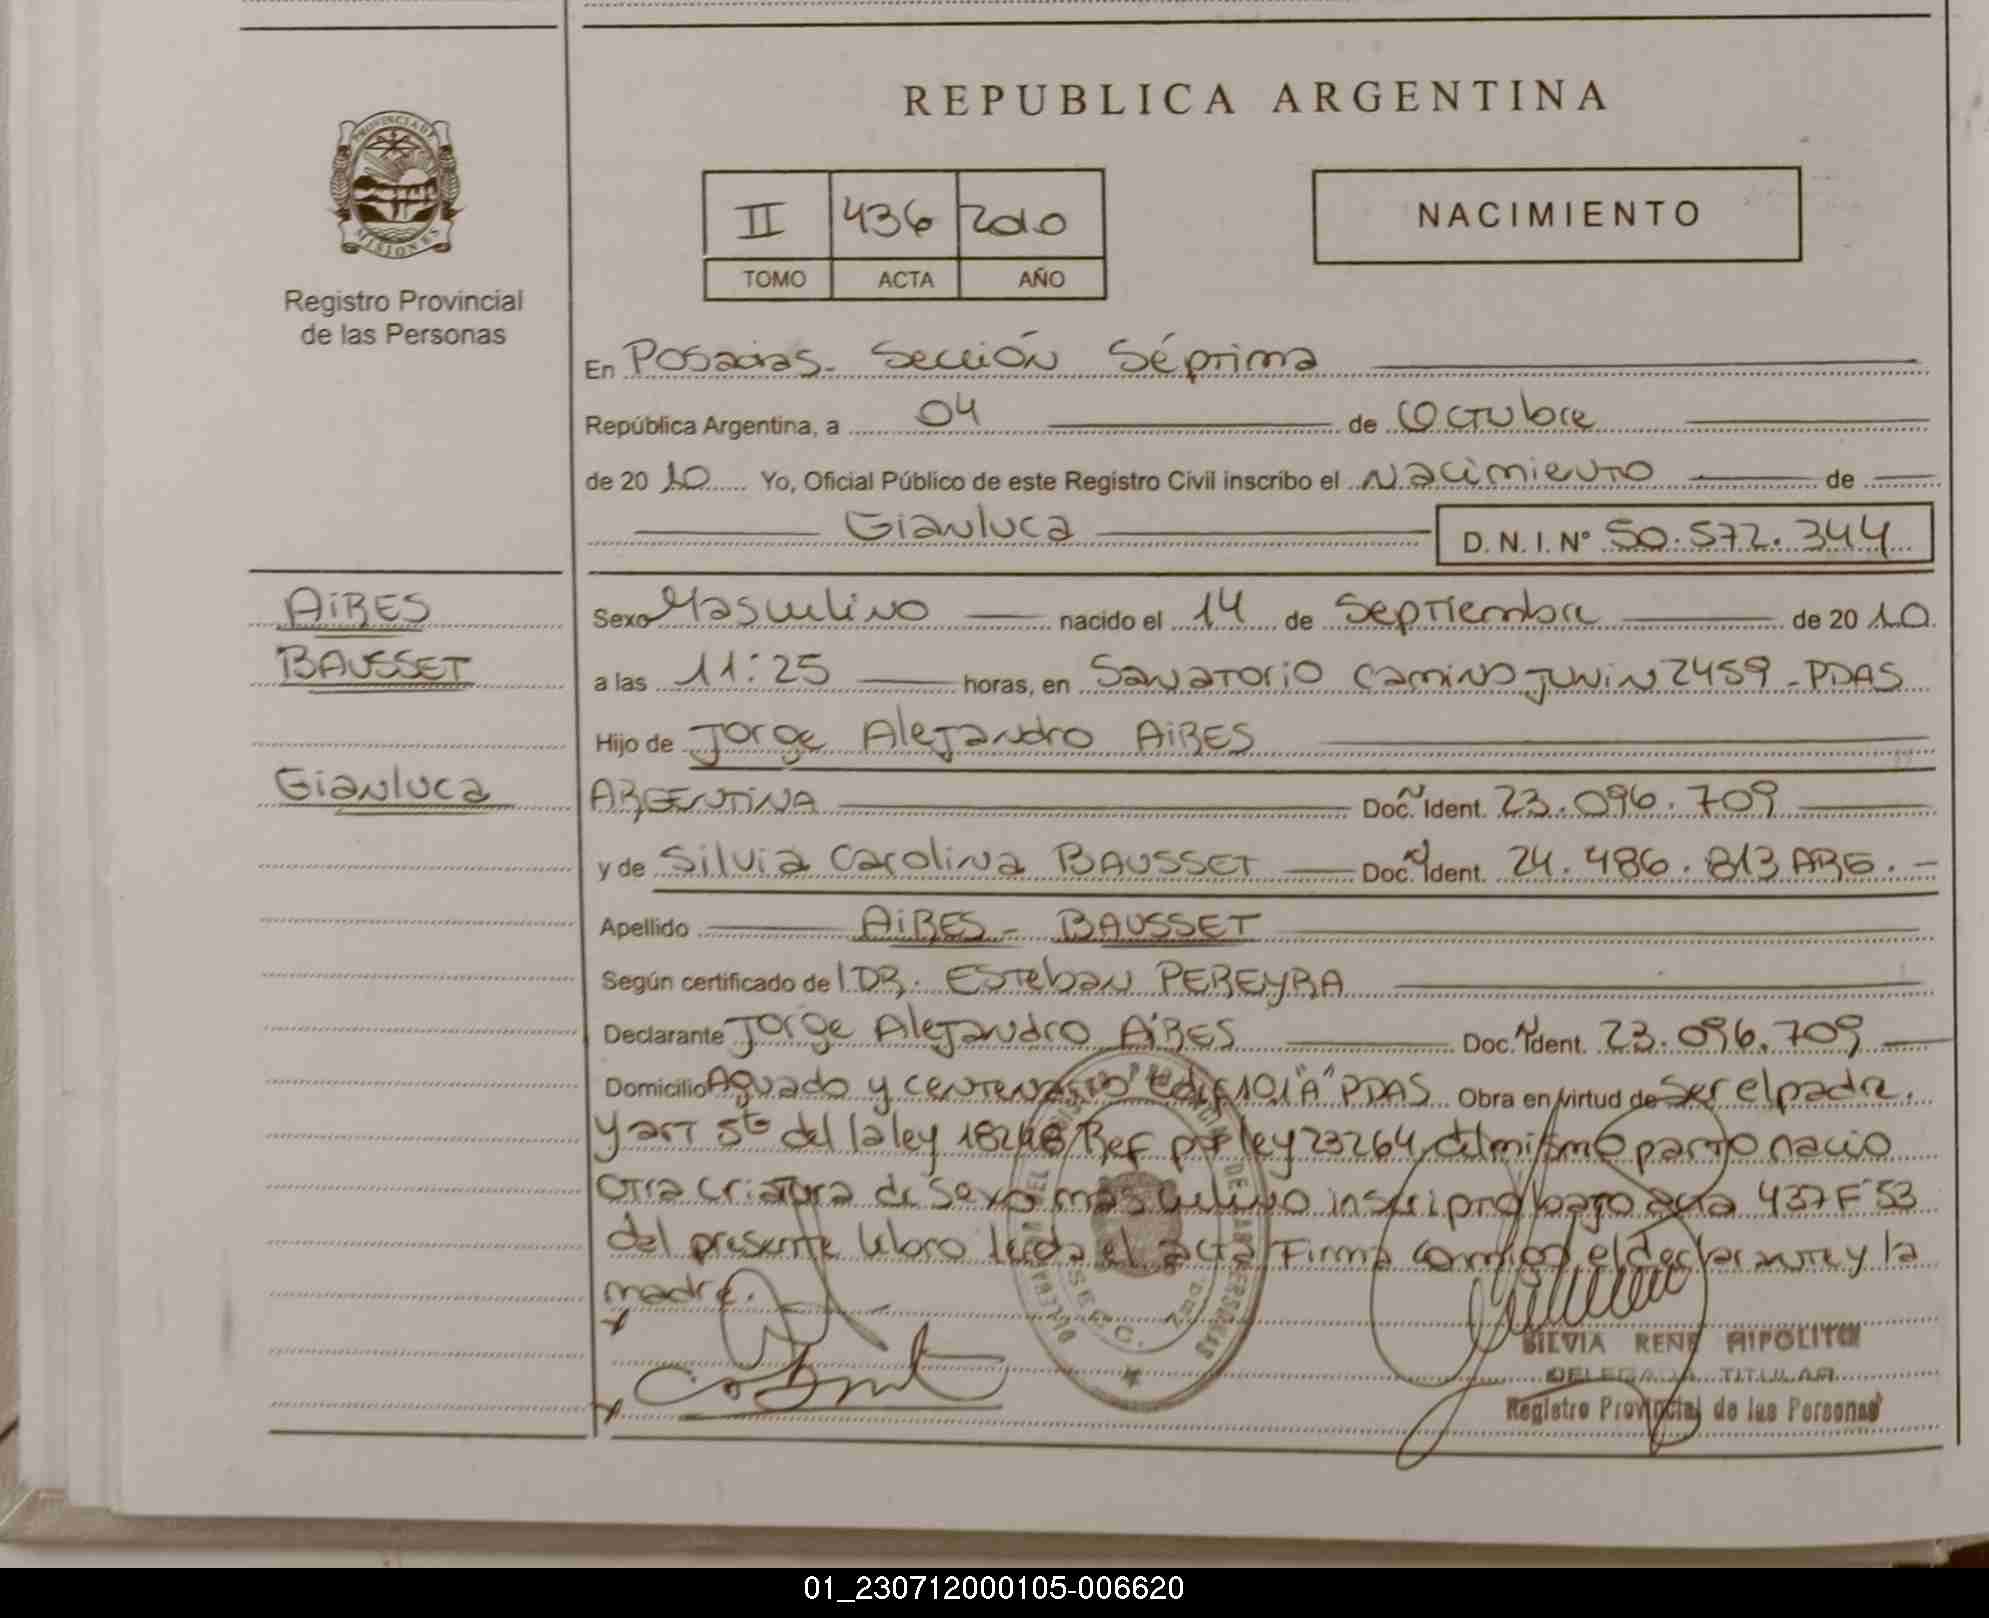 REPUBLICA ARGENTINA
PROVINCIA DE
MISIONES
Registro Provincial
de las Personas
II 436 2010
TOMO ACTA AÑO
NACIMIENTO
En Posadas - Sección Séptima
República Argentina, a 04 de Octubre
de 2010 Yo, Oficial Público de este Registro Civil inscribo el Nacimiento de
Gianluca D. N. I. N° 50.572.344
AiRES
BAUSSET
Gianluca
Sexo Masculino nacido el 14 de Septiembre de 2010
a las 11:25 horas, en Sanatorio Camino Junin 2459 - PDAS
Hijo de Jorge Alejandro AiRES
ARGENTINA Doc. Ident. 23.096.709
y de Silvia Carolina BAUSSET Doc. Ident. 24.486.813 ARG. -
Apellido AiRES - BAUSSET
Según certificado de DR. Esteban PEREYRA
Declarante Jorge Alejandro AiRES Doc. Ident. 23.096.709
Domicilio Aguado y Centenario Edif 101 "A" PDAS Obra en virtud de ser el padre.
y art 5to del la ley 18248 Ref por ley 23264 del mismo parto nacio
otra criatura de sexo masculino inscripto bajo acta 437 F 53
del presente libro leida el acta Firma conmigo el declarante y la
madre.
SILVIA RENE HIPOLITO
DELEGADA TITULAR
Registro Provincial de las Personas
01_230712000105-006620